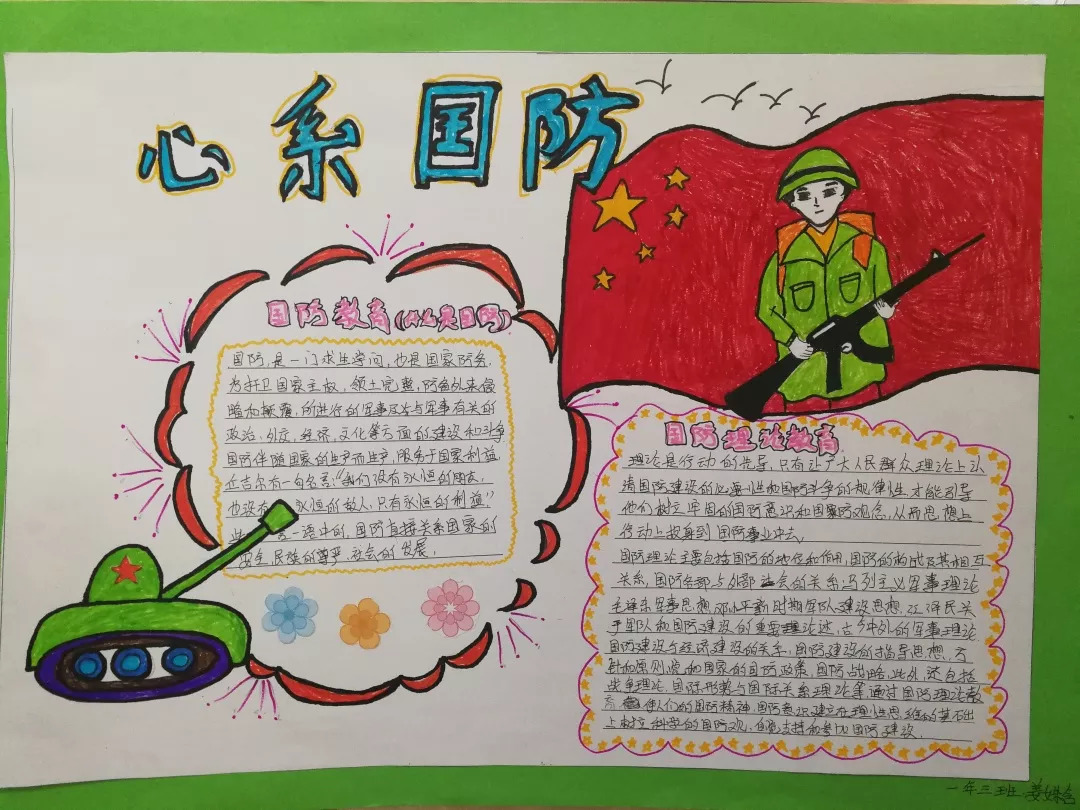 心系国防
国防教育(什么是国防)
国防,是一门求生学问,也是国家防务,
为捍卫国家主权,领土完整,防备外来侵
略和颠覆,所进行的军事及与军事有关的
政治、外交、经济、文化等方面的建设和斗争
国防伴随国家的生产而生产,服务于国家利益
丘吉尔有一句名言:“我们没有永恒的朋友,
也没有永恒的敌人,只有永恒的利益”
一语中的,国防直接关系国家的
安全,民族的尊严,社会的发展。
国防理论教育
理论是行动的先导,只有让广大人民群众理论上认
清国防建设的必要性和国防斗争的规律性,才能引导
他们树立牢固的国防意识和国家防观念,从而思想上
行动上投身到国防事业中去。
国防理论主要包括国防的地位和作用,国防的构成及其相互
关系,国防各部与外部社会的关系,马列主义军事理论
毛泽东军事思想,邓小平新时期军队建设思想,江泽民关
于军队和国防建设的重要理论述,古今中外的军事理论
国防建设与经济建设的关系,国防建设的指导思想、方
针和原则,党和国家的国防政策、国防战略,此外,还包括
战争理论、国际形势与国际关系理论等通过国防理论教
育使人们的国防精神、国防意识建立在理性思维的基础
上树立科学的国防观,自觉支持和参加国防建设。
一年三班